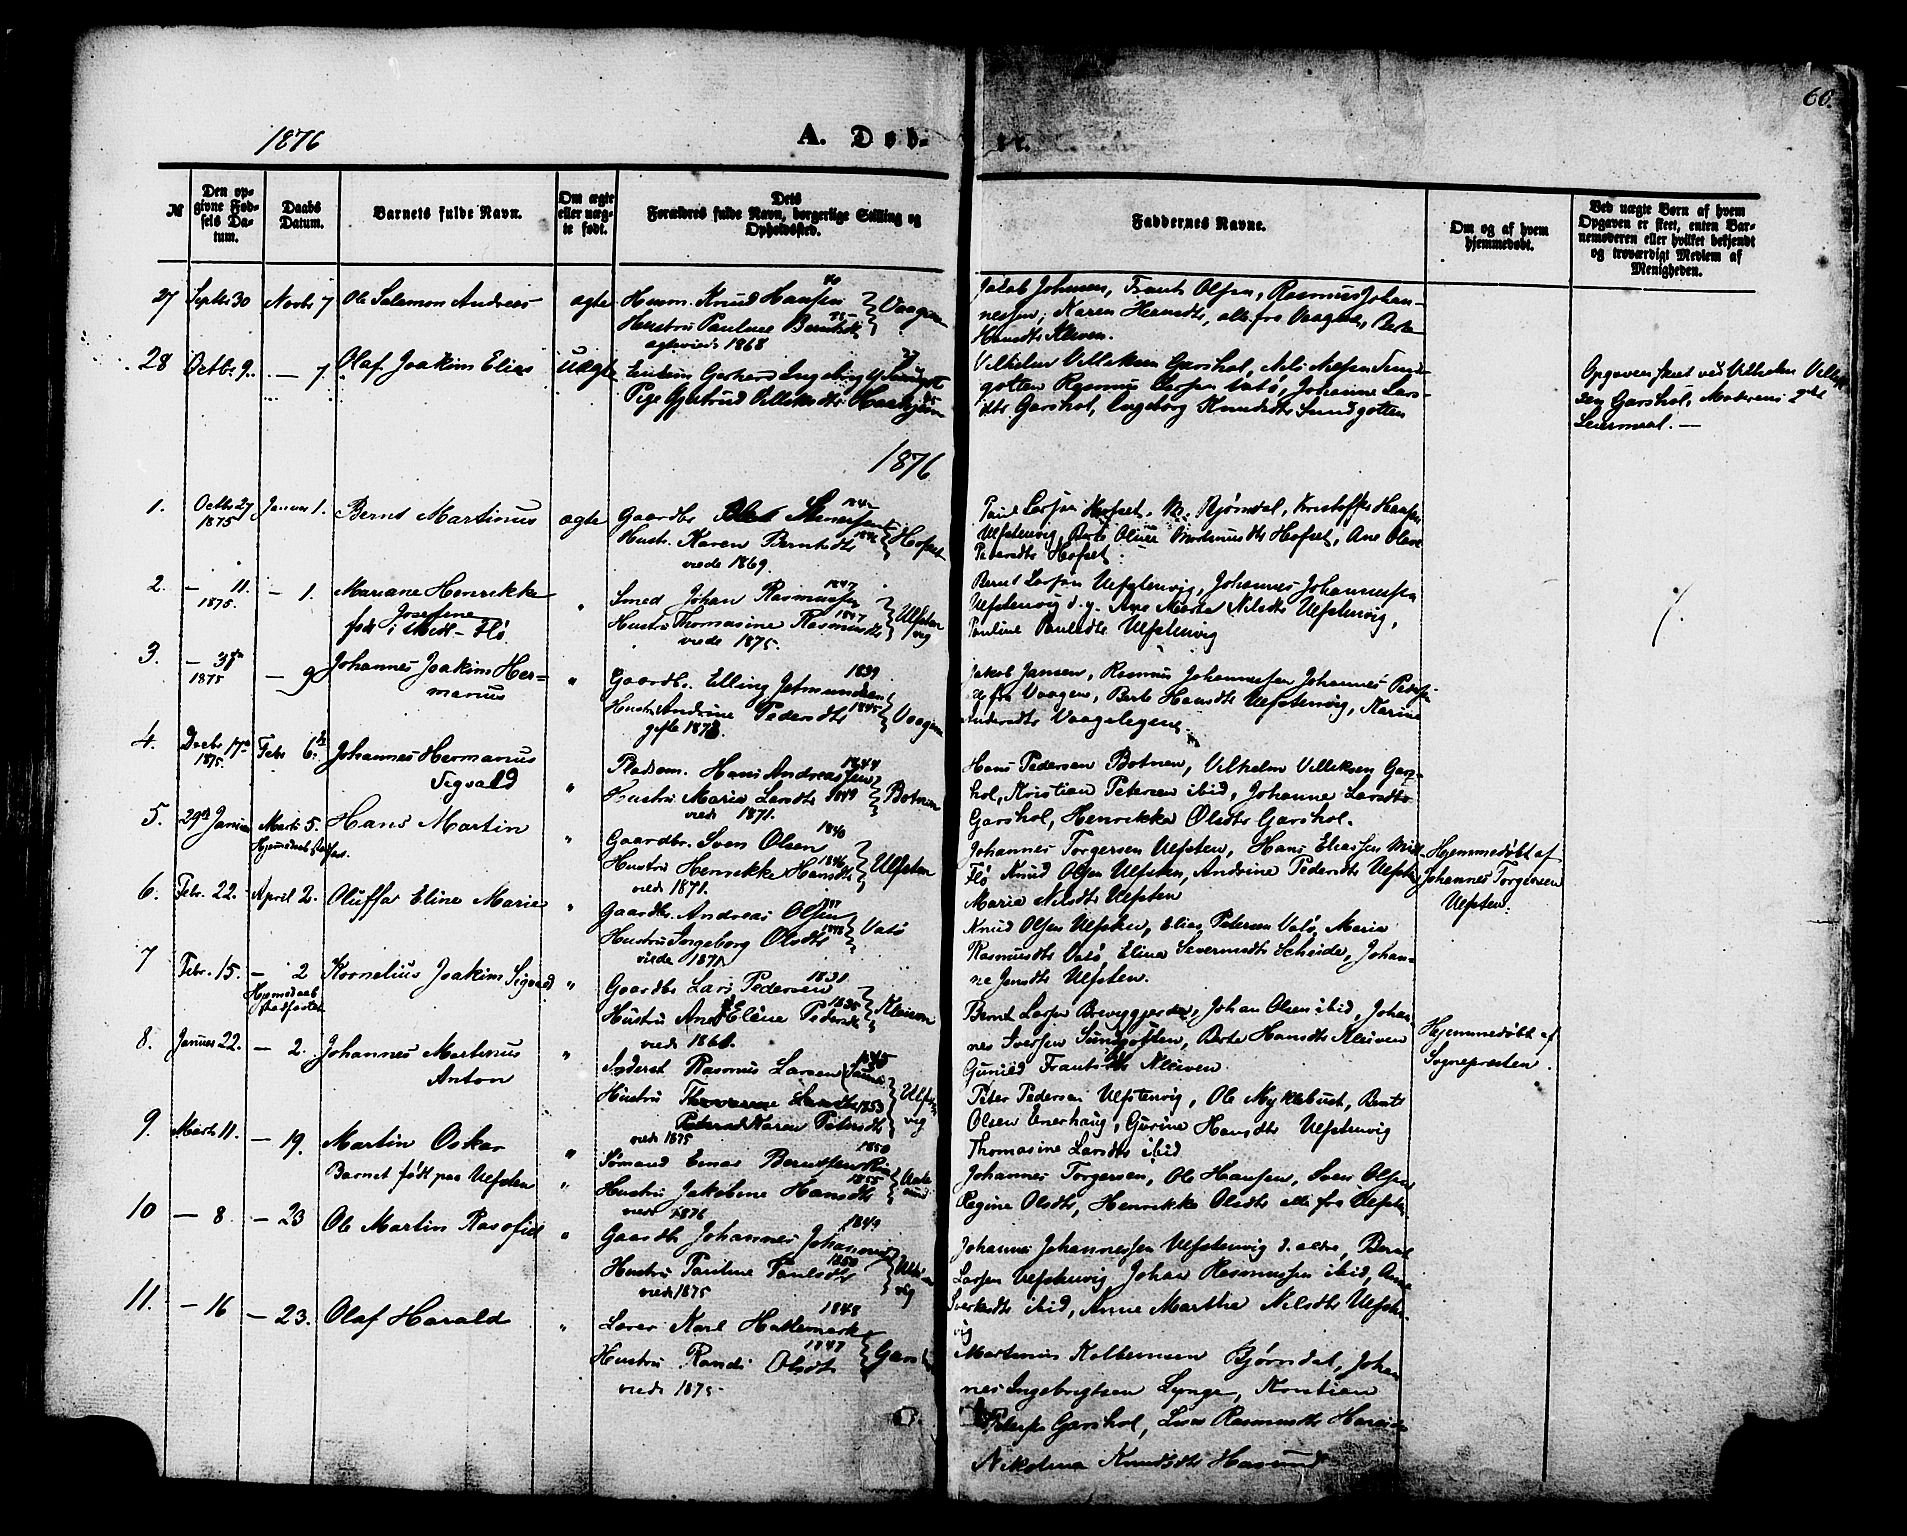 60.
1876
A. Døb-
te.
№
Den op-
givne Fød-
sels Da-
tum.
Daabs
Datum.
Barnets fulde Navn.
Om ægte
eller uæg-
te født.
Dets
Forældres fulde Navn, borgerlige Stilling og
Opholdssted.
Faddernes Navne.
Om og af hvem
hjemmedøbt.
Ved uægte Børn af hvem
Opgaven er skeet, enten Bar-
nemoderen eller hvilket bekjendt
og troværdigt Medlem af
Menigheden.
27 Septbr 30 Novbr 7 Ole Salamon Andreas ægte Husm. Knud Hansen 40
Hustru Pauline Berntsdt Vaagen
ægteviede 1868
Jakob Johnsen, Frants Olsen, Rasmus Johan-
nessen, Karen Hansdtr, alle fra Vaagen, Berte
Hansdtr Kleven.
28 Octbr 9. — 7 Olaf Joakim Elias uægte
Pige Gjertrud Villiksdtr
Vilhelm Villiksen Garshol, Nils Nilsen Sund-
gotten Rasmus Larsen Vatø, Johanne Lars-
dtr Garshol, Ingeborg Knudsdtr Sundgotten
Opgaven skeet ved Vilhelm Villik-
sen Garshol, Moderens 2det
Leiermaal. —
1876
1. Octbr 27 1875 Januar 1. Bernt Martinus ægte Gaardbr.
Hust. Karen Berntsdtr Hofset
viede 1869.
Paul Larsen Hofset, M. Bjørndal, Kristoffer Hansen
Ulfstenvig, Berte Oline Mortinusdtr Hofset, Ane Oline
Pedersdtr Hofset.
2. — 11. 1875. — 1. Mariane Henrikke
Josefine
født i Midt-Flø
" Smed Johan Rasmussen 1847
Hustru Thomasine Rasmusdtr 1847 Ulfsten
vig
viede 1875.
Bernt Larsen Ulfstenvig, Johannes Johannessen
Ulfstenvig d. y. Ane Marta Nilsdtr Ulfstenvig,
Pauline Paulsdtr Ulfstenvig
3. — 31 1875 — 9 Johannes Joakim Her-
manus
" Gaardbr. Elling Jetmundsen 1839
Hustru Andrine Pedersdtr 1845 Vaagen
gifte 1873
Jakob Jansen, Rasmus Johannessen Johannes Peders
de fra Vaagen, Berte Hansdtr Ulfstenvig, Karine
Andersdtr Vaagelegene
4. Decbr 17de 1875. Febr 6. Johannes Hermanus
Sigvald
" Pladsm. Hans Andreassen 1844
Hustru Marie Larsdtr 1849 Botnen
viede 1871.
Hans Pedersen Botnen, Vilhelm Villiksen Gars-
hol, Kristian Petersen ibid, Johanne Larsdtr
Garshol, Henrikke Olsdtr Garshol.
5. 29de Januar Marts 5. Hans Martin
Hjemmedaab stadfæs.
" Gaardbr. Sven Olsen 1840
Hustru Henrikke Hansdtr 1846 Ulfsten
viede 1871.
Johannes Torgersen Ulfsten, Hans Eliassen Midt-
Flø Knud Olsen Ulfsten, Andrine Pedersdtr Ulfsten
Marie Nilsdtr Ulfsten
Hjemmedøbt af
Johannes Torgersen
Ulfsten.
6. Febr. 22. April 2. Oluffa Eline Marie
" Gaardbr. Andreas Olsen
Hustru Ingeborg Olsdtr Vatø
viede 1871
Knud Olsen Ulfsten, Elias Petersen Vatø, Marie
Rasmusdtr Vatø, Eline Severinsdtr Scheide, Johan-
ne Jensdtr Ulfsten.
7 Febr. 15. — 2 Kornelius Joakim Sigvald
Hjemmedaab
stadfæstet
" Gaardbr Lars Pedersen 1831
Hustru Ane Eline Pedersdtr 1836 Kleven
viede 1861.
Bernt Larsen Breviggjerdet, Johan Olsen ibid, Johan-
nes Iversen Sundgotten, Berte Hansdtr Kleven
Gunild Frantsdtr Kleven
Hjemmedøbt af
Sognepresten.
8. Januar 22. — 2. Johannes Martinus
Anton
" Inderst Rasmus Larsen 1845
Hustru 1853 Karen Petersdtr Ulfsten
vig
viede 1875
Peter Pedersen Ulfstenvig, Ole Myklebust, Bernt
Olsen Enerhaug, Gurine Hansdtr Ulfstenvig
Thomasine Larsdtr ibid
9. Marts 11. — 19. Martin Oskar
Barnet født paa Ulfsten
" Sømand Einar Berntsen 1850
Hustru Jakobine Hansdtr 1855
viede 1876
Johannes Torgersen, Ole Hansen, Sven Olsen
Regine Olsdtr, Henrikke Olsdtr alle fra Ulfsten.
10 — 8. — 23 Ole Martin Rasofiel
" Gaardbr Johannes Johannessen 1849
Hustru Pauline Paulsdtr 1850 Ulfsten
vig
viede 1875
Johannes Johannessen Ulfstenvig d. ældre, Bernt
Larsen Ulfstenvig Johan Rasmussen ibid, Ane
Sverkesdtr ibid, Anne Marthe Nilsdtr Ulfsten-
vig
11. — 16 — 23. Olaf Harald
" Lærer Karl Hatlemark 1848
Hustru Randi Olsdtr 1847 Garshol
viede 1875.
Martinus Kolbensen Bjørndal, Johan
nes Ingebrigtsen Lynge, Kristian
Petersen Garshol, Lise Rasmusdtr Hareide
Nikolina Knudsdtr Hasund